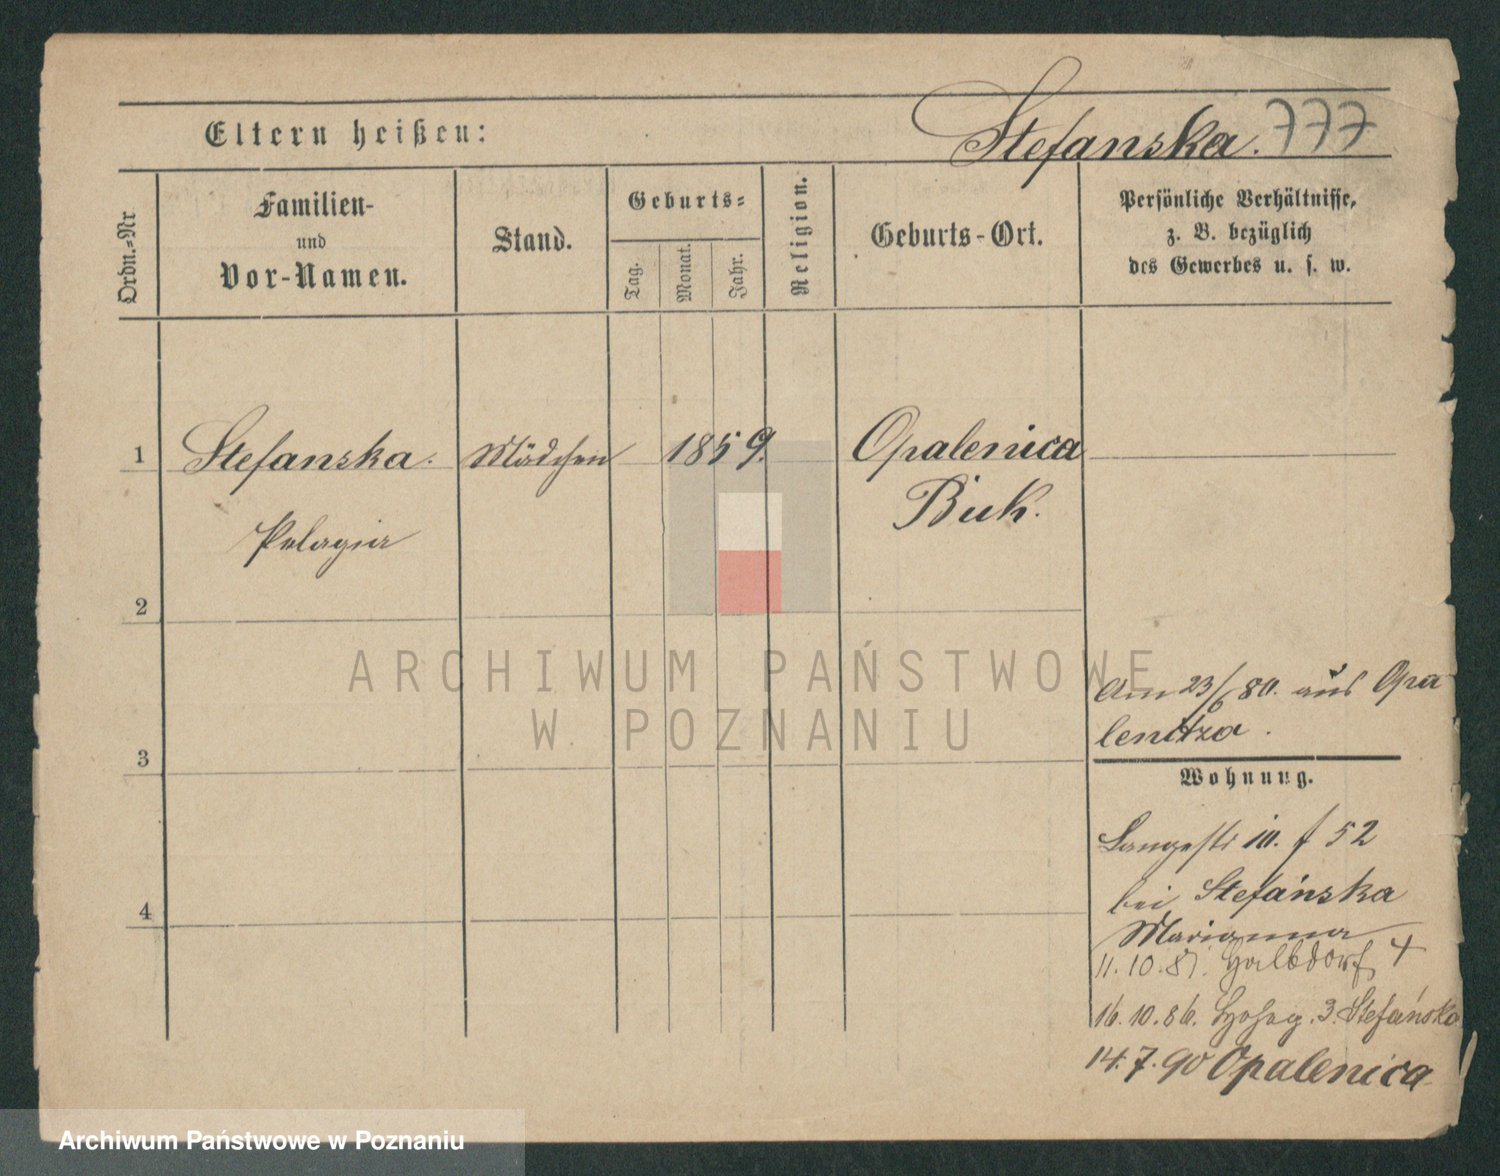 Eltern heißen:
Stefanska. 777
Ordn.=Nr
Familien-
und
Vor-Namen.
Stand.
Geburts=
Tag.
Monat.
Jahr.
Religion.
Geburts-Ort.
Persönliche Verhältnisse,
z. B. bezüglich
des Gewerbes u. s. w.
1 Stefanska. Mädchen 1859. Opalenica
Buk.
Pelagia
2
ARCHIWUM PAŃSTWOWE
W POZNANIU
Am 23/6 80. aus Opa
lenitza.
3
Wohnung.
Langestr 10. f 52
bei Stefańska
4
Marianna
11.10.81. Halbdorf 4
16.10.86. 3. Stefańska
14.7.90 Opalenica
Archiwum Państwowe w Poznaniu